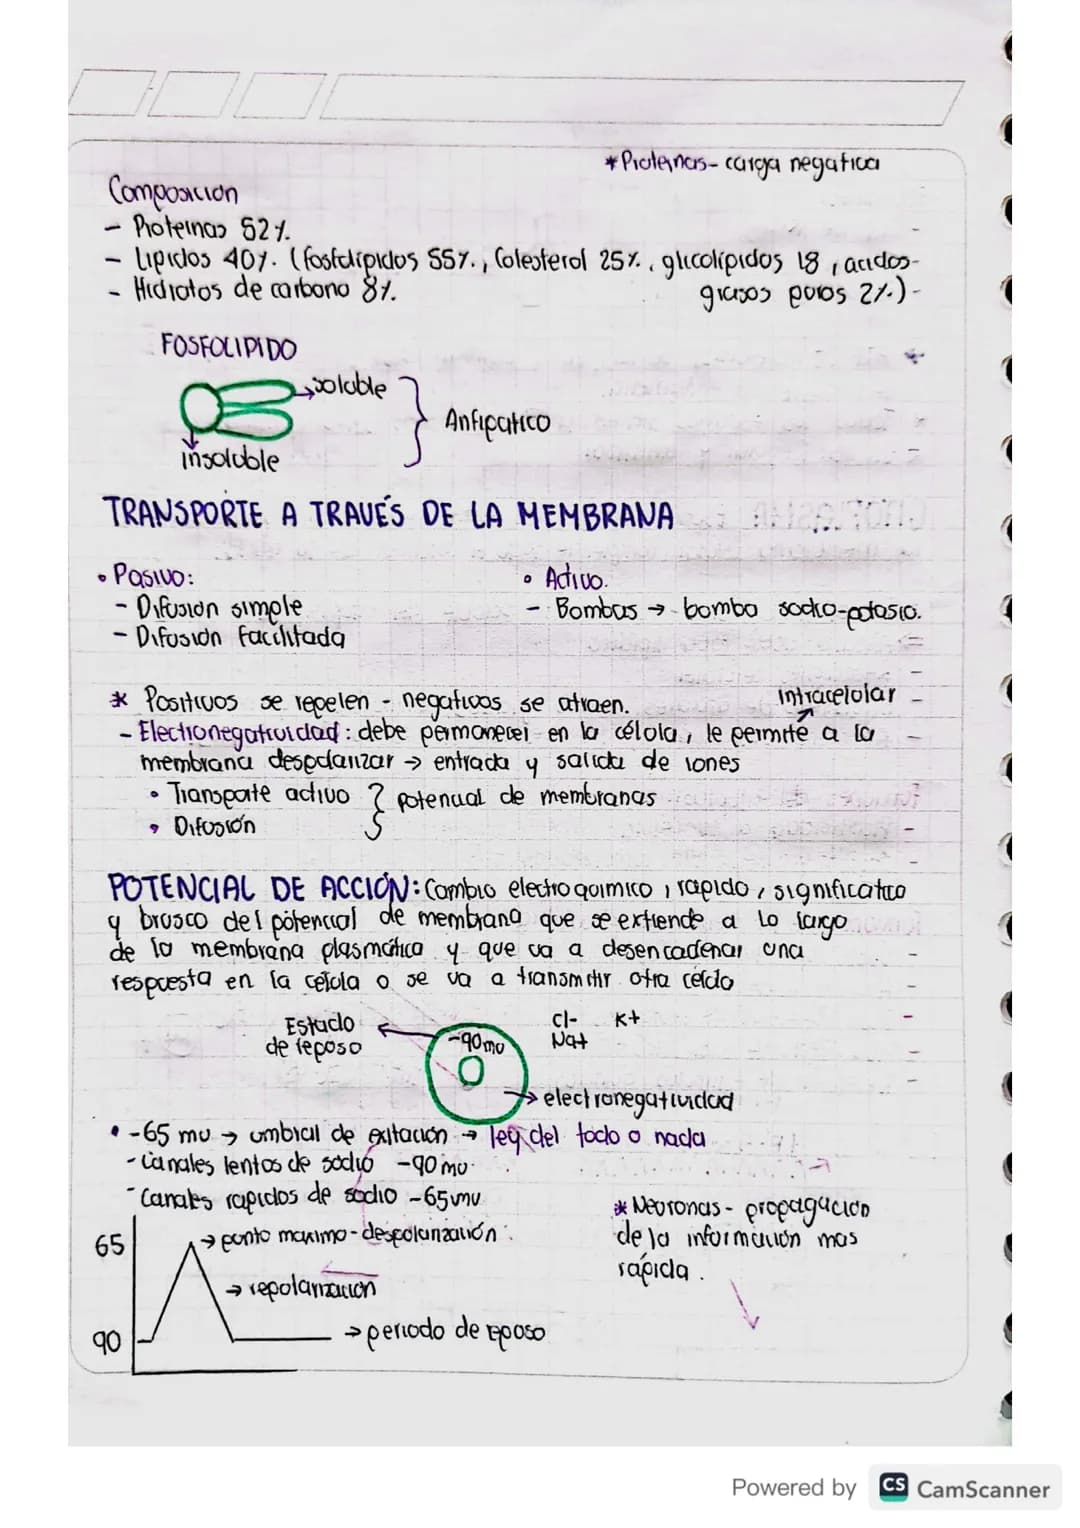 *Proteinas- carga negativa
Composicion
- Proteinas 52%.
- Lipidos 40%. (fosfolipidos 55%., Colesterol 25%., glucolipidos 18, acidos-
grasos puros 2%.)-
- Hidratos de carbono 8%.
FOSFOLIPIDO
→soluble
Anfipatico
insoluble
TRANSPORTE A TRAVÉS DE LA MEMBRANA
• Pasivo:
- Difusion simple
- Difusión facilitada
• Activo.
- Bombas → bomba sodio-potasio.
* Positivos se repelen - negativos se atraen.
Intracelular
- Electronegatividad: debe permanecer en la célula, le permite a la
membrana despolarizar → entrada y salida de iones
• Transporte activo } potencial de membranas
• Difusión
POTENCIAL DE ACCIÓN: Cambio electroquimico, rapido, significativo
y brusco del potencial de membrana que se extiende a lo largo
de la membrana plasmática y que va a desencadenar una
respuesta en la celula o se va a transmitir otra célda
Estado
de reposo
-90mv
Cl- K+
Na+
→ electronegatividad
• -65 mv → umbral de exitación → ley del todo o nada
- Canales lentos de sodio -90mv.
- Canales rapidos de sodio -65mv
65
→ punto maximo - despolarización.
→ repolarización
90
→ periodo de reposo
* Neuronas - propagación
de la información mas
rápida.
Powered by CS CamScanner